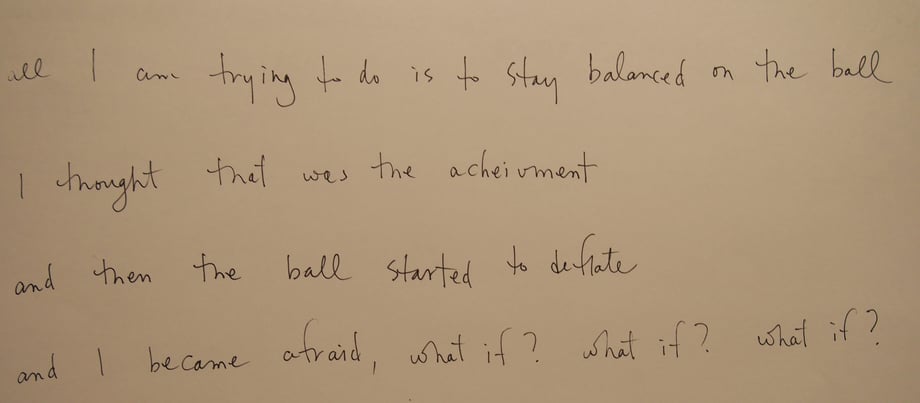 all I am trying to do is to stay balanced on the ball
I thought that was the acheivment
and then the ball started to deflate
and I became afraid, what if? what if? what if?